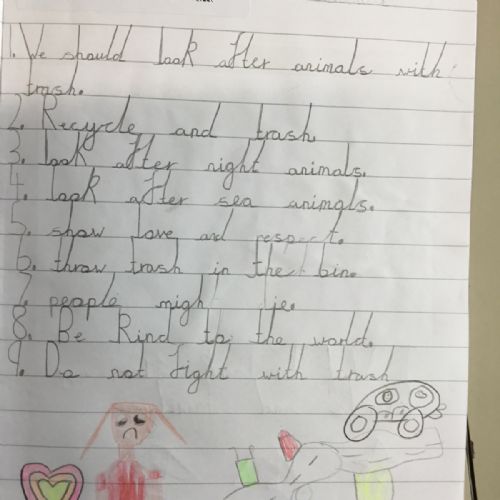 1. We should look after animals with
trash.
2. Recycle and trash
3. look after night animals.
4. look after sea animals.
5. show love and respect.
6. throw trash in the bin.
7. people migh
8. Be kind to the world.
9. Do not fight with trash